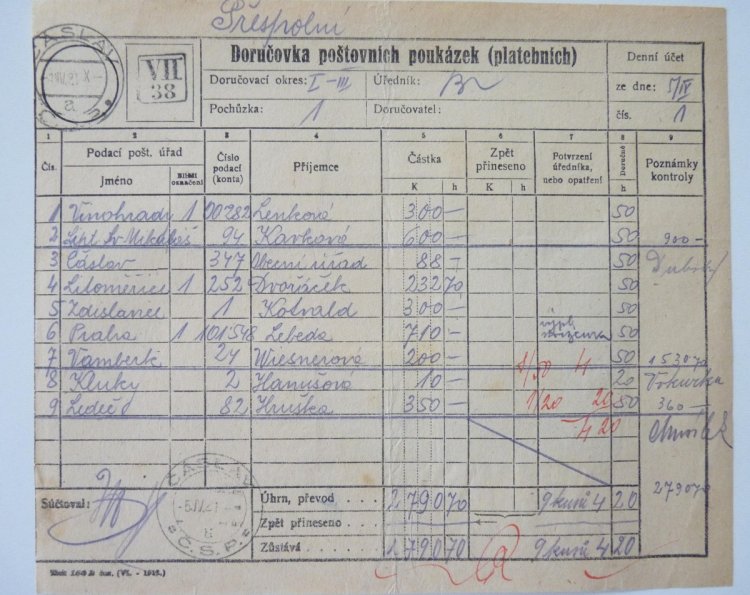 Přespolní
ČÁSLAV
VII
38
Doručovka poštovních poukázek (platebních)
Denní účet
Doručovací okres: I–III Úředník:
ze dne: 5/IV
Pochůzka: 1 Doručovatel:
čís. 1
1 2 3 4 5 6 7 8 9
Čís. Podací pošt. úřad Číslo podací (konta) Příjemce Částka Zpět přineseno Potvrzení úředníka, nebo opatření Doručné Poznámky kontroly
Jméno Bližší označení K h K h h
1 Vinohrady 1 00282 Lenková 300 — 50
2 Lipt. Sv. Mikuláš 94 Kavková 600 — 50 900 —
3 Čáslav 347 Obecní úřad 88 — 50
4 Litoměřice 1 252 Dvořáček 232 70 50
5 Zdislavice 1 Kotvald 300 — 50
6 Praha 1 101548 Lebeda 710 — 50
7 Vamberk 24 Wiesnerová 200 — 50 1530 70
8/50 4
8 Kluky 2 Hanušová 10 — 20
9 Ledeč 82 Hruška 350 — 1/20 20 50 360 —
4 20
2790 70
Súčtoval:
ČÁSLAV
Č.S.P.
Úhrn, převod . . . 2790 70 9 kusů 4 20
Zpět přineseno . . .
Zůstává . . . 2790 70 9 kusů 4 20
(VI. - 1918.)